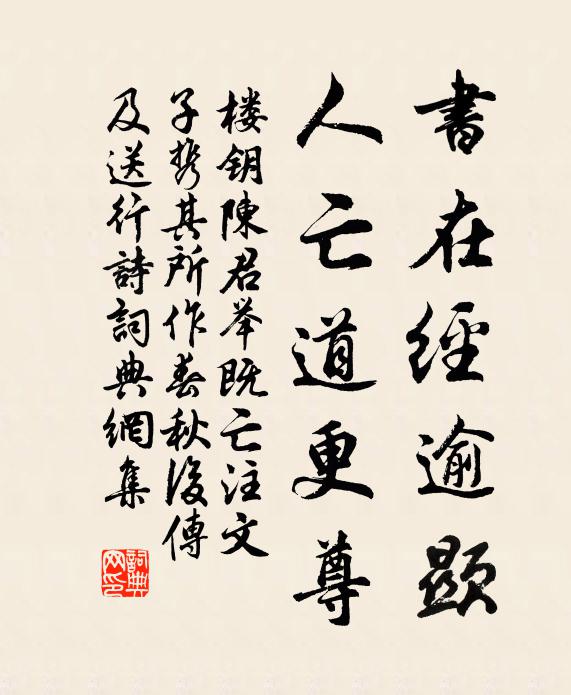 書在經逾顯
人亡道更尊
楼钥陳君举既亡注文
子携其所作春秋後傳
及送行詩詞典網集
詞典网印